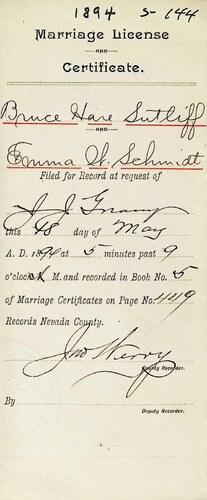 1894 S-144
Marriage License
AND
Certificate.
Bruce Hare Sutliff
AND
Emma W. Schmidt
Filed for Record at request of
J J
this 18 day of May
A. D. 1894 at 5 minutes past 9
o'clock A M. and recorded in Book No. 5
of Marriage Certificates on Page No. 449
Records Nevada County.
Jno Werry
County Recorder.
By
Deputy Recorder.